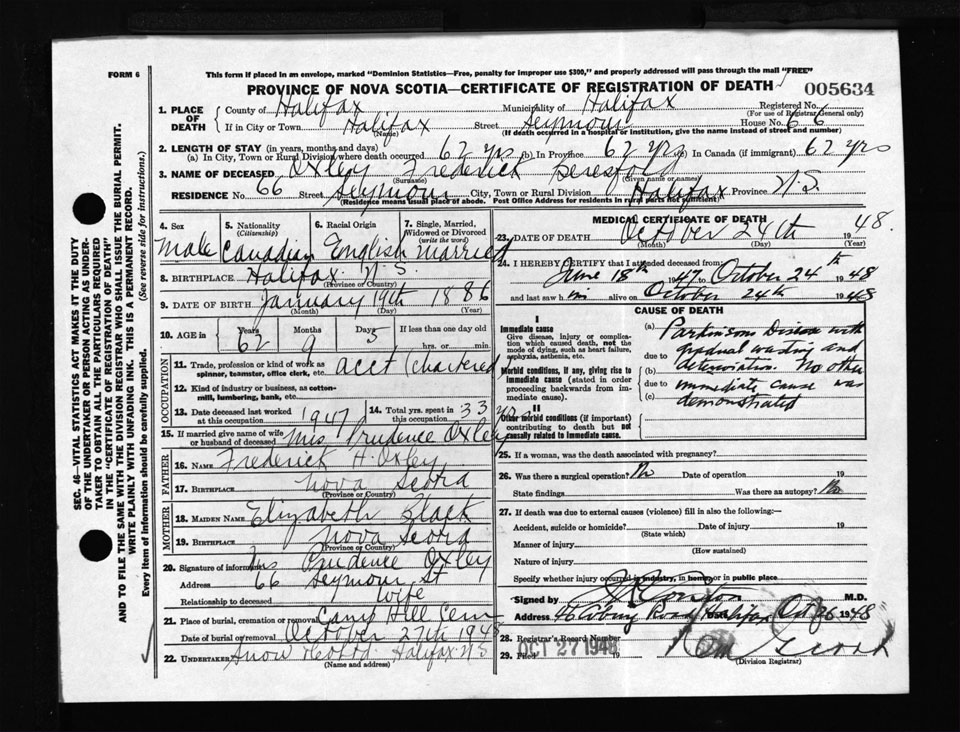 FORM 6
This form if placed in an envelope, marked "Dominion Statistics—Free, penalty for improper use $300," and properly addressed will pass through the mail "FREE"
PROVINCE OF NOVA SCOTIA—CERTIFICATE OF REGISTRATION OF DEATH 005634
1. PLACE OF DEATH
County of Halifax Municipality of Halifax Registered No.
(For use of Registrar General only)
If in City or Town Halifax Street Seymour House No. 66
(Name) (If death occurred in a hospital or institution, give the name instead of street and number)
2. LENGTH OF STAY (in years, months and days)
(a) In City, Town or Rural Division where death occurred 62 yrs (b) In Province 62 yrs (c) In Canada (if immigrant) 62 yrs
3. NAME OF DECEASED Oxley Frederick Beresford
(Surname) (Given name or names)
RESIDENCE No. 66 Street Seymour City, Town or Rural Division Halifax Province N.S.
(Residence means usual place of abode. Post Office Address for residents in rural parts not sufficient)
4. Sex Male
5. Nationality (Citizenship) Canadian
6. Racial Origin English
7. Single, Married, Widowed or Divorced (write the word) Married
8. BIRTHPLACE Halifax N.S.
(Province or Country)
9. DATE OF BIRTH January 19th 1886
(Month) (Day) (Year)
10. AGE in Years 62 Months 9 Days 5 If less than one day old
hrs. or min.
OCCUPATION
11. Trade, profession or kind of work as spinner, teamster, office clerk, etc. acct (chartered
12. Kind of industry or business, as cotton-mill, lumbering, bank, etc.
13. Date deceased last worked at this occupation 1947
14. Total yrs. spent in this occupation 33 yrs
15. If married give name of wife or husband of deceased Mrs Prudence Oxley
FATHER
16. NAME Frederick H. Oxley
17. BIRTHPLACE Nova Scotia
(Province or Country)
MOTHER
18. MAIDEN NAME Elizabeth Black
19. BIRTHPLACE Nova Scotia
(Province or Country)
20. Signature of informant Mrs Prudence Oxley
Address 66 Seymour St
Relationship to deceased Wife
21. Place of burial, cremation or removal Camp Hill Cem
Date of burial or removal October 27th 1948
22. UNDERTAKER Snow Halifax N.S
(Name and address)
MEDICAL CERTIFICATE OF DEATH
23. DATE OF DEATH October 24th 1948
(Month) (Day) (Year)
24. I HEREBY CERTIFY that I attended deceased from:
June 18th 1947 to October 24th 1948
and last saw him alive on October 24th 1948
CAUSE OF DEATH
I
Immediate cause
Give disease, injury or complication which caused death, not the mode of dying, such as heart failure, asphyxia, asthenia, etc.
Morbid conditions, if any, giving rise to immediate cause (stated in order proceeding backwards from immediate cause).
II
Other morbid conditions (if important) contributing to death but not causally related to immediate cause.
(a) Parkinsons Disease with
due to gradual wasting and
(b) deterioration. No other
due to immediate cause was
(c) demonstrated
25. If a woman, was the death associated with pregnancy?
26. Was there a surgical operation? No Date of operation 19
State findings Was there an autopsy? No
27. If death was due to external causes (violence) fill in also the following:—
Accident, suicide or homicide? Date of injury 19
(State which)
Manner of injury
(How sustained)
Nature of injury
Specify whether injury occurred in industry, in home, or in public place
Signed by M.D.
Address Road Halifax Oct 26 1948
28. Registrar's Record Number
29. Filed OCT 27 1948 19
(Division Registrar)
SEC. 46—VITAL STATISTICS ACT MAKES IT THE DUTY
OF THE UNDERTAKER OR PERSON ACTING AS UNDER-
TAKER TO OBTAIN ALL THE PARTICULARS REQUIRED
IN THE "CERTIFICATE OF REGISTRATION OF DEATH"
AND TO FILE THE SAME WITH THE DIVISION REGISTRAR WHO SHALL ISSUE THE BURIAL PERMIT.
WRITE PLAINLY WITH UNFADING INK. THIS IS A PERMANENT RECORD.
Every item of information should be carefully supplied. (See reverse side for instructions.)